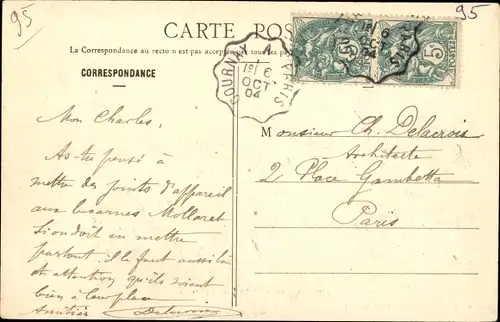 95
95
CARTE POS
La Correspondance au recto n'est pas acceptée par tous les pa
CORRESPONDANCE
GOURNAY A PARIS
1º/ 6
OCT
04
6
OCT
04
5
Mon Charles,
As-tu pensé à
mettre des joints d'appareil
aux lucarnes Mollaret
Si on doit en mettre
partout, il le faut aussi là
et attention qu'ils soient
bien à leur place
Amitiés Delacroix
Monsieur Ch. Delacroix
Architecte
2 Place Gambetta
Paris